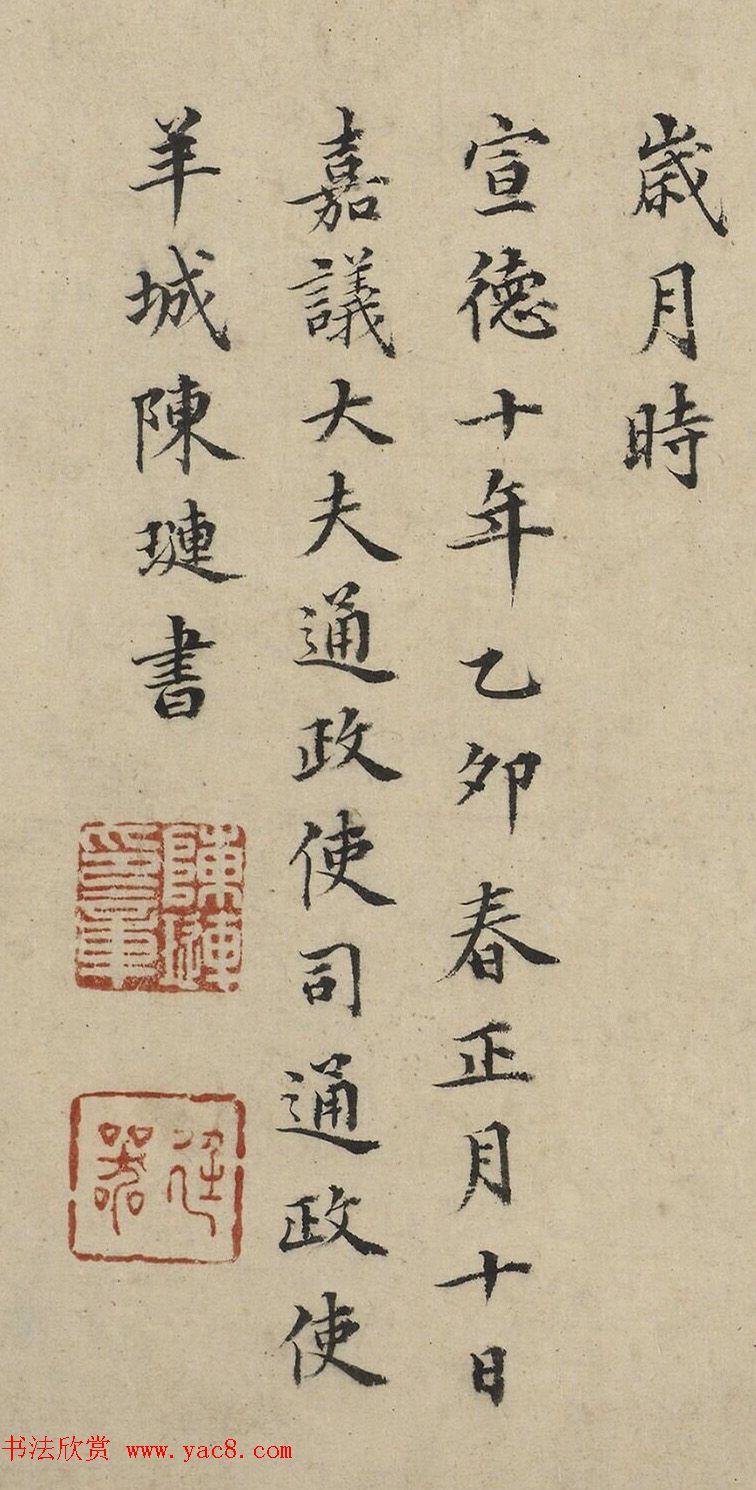 歲月時
宣德十年乙卯春正月十日
嘉議大夫通政使司通政使
羊城陳璉書
陳璉
廷器
书法欣赏 www.yac8.com